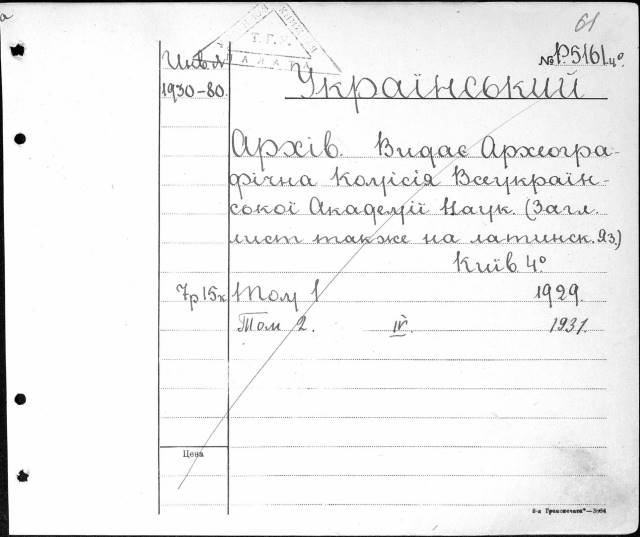 61
№ P.5161 4º.
Инв. №
1930-80.
Український
Архів. Видає Археогра-
фічна Комісія Всеукраїн-
ської Академії Наук. (Загл.
лист также на латинск. яз.)
Київ. 4º
7р15к Том 1 1929.
Том 2. IV. 1931.
Цена
Т.Г.К.
ПАЛАТА